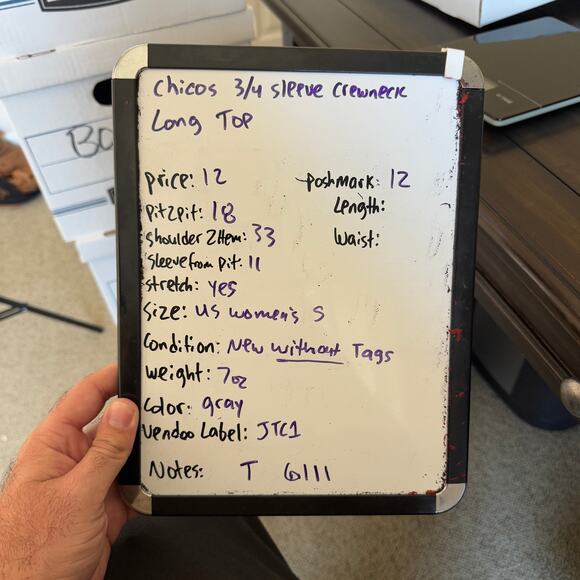 Chicos 3/4 sleeve Crewneck
Long Top
price: 12
poshmark: 12
pit2pit: 18
Length:
shoulder2Hem: 33
Waist:
sleevefrom pit: 11
stretch: yes
Size: US women's S
Condition: New without Tags
weight: 7oz
Color: gray
Vendoo Label: JTC1
Notes: T 6111
BO